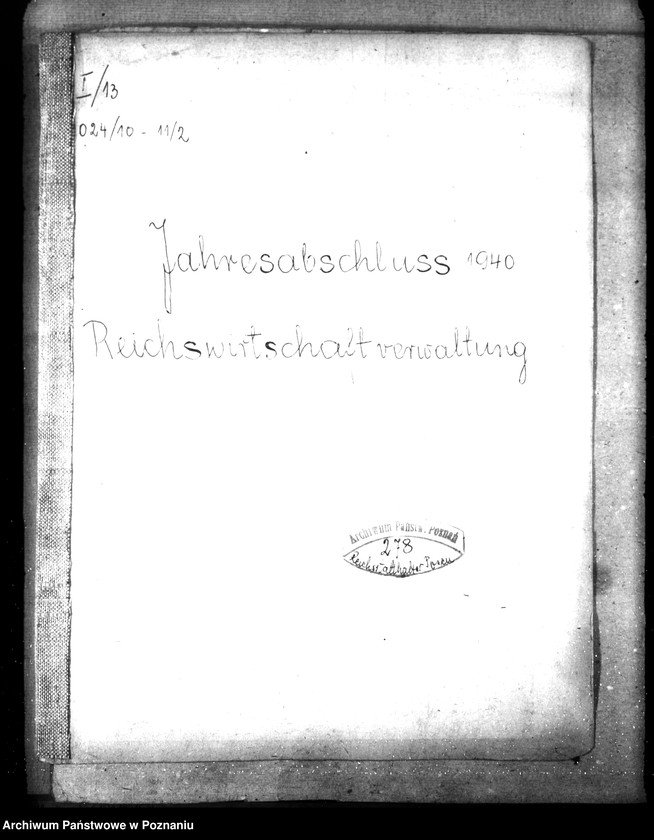 I/13
024/10 - 11/2
Jahresabschluss 1940
Reichswirtschaftverwaltung
Archiwum Państw. Poznań
278
Reichsstatthalter Posen
Archiwum Państwowe w Poznaniu